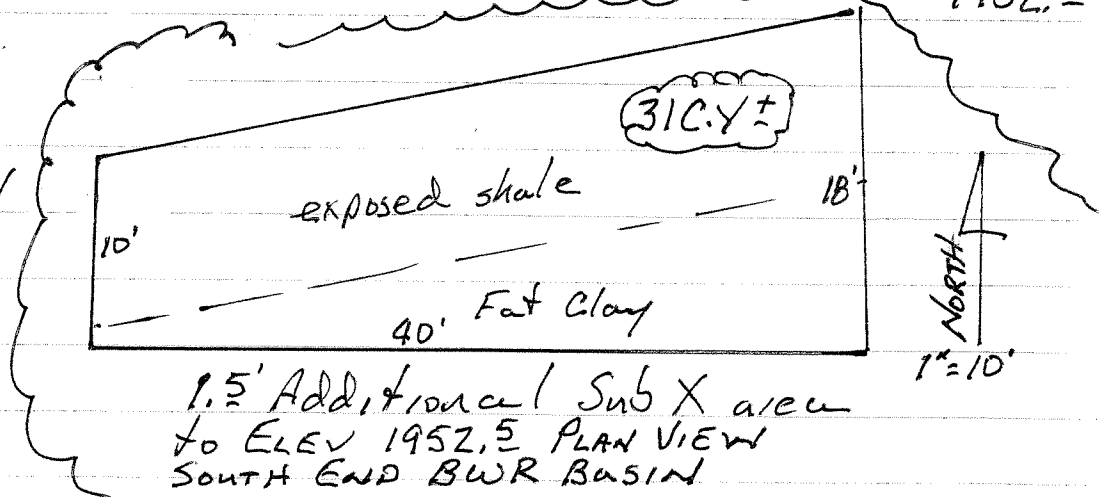 31 C.Y ±
exposed shale
18'
10'
NORTH
Fat Clay
40'
1"=10'
1.5' Additional Sub X area
to ELEV 1952.5 PLAN VIEW
SOUTH END BWR BASIN